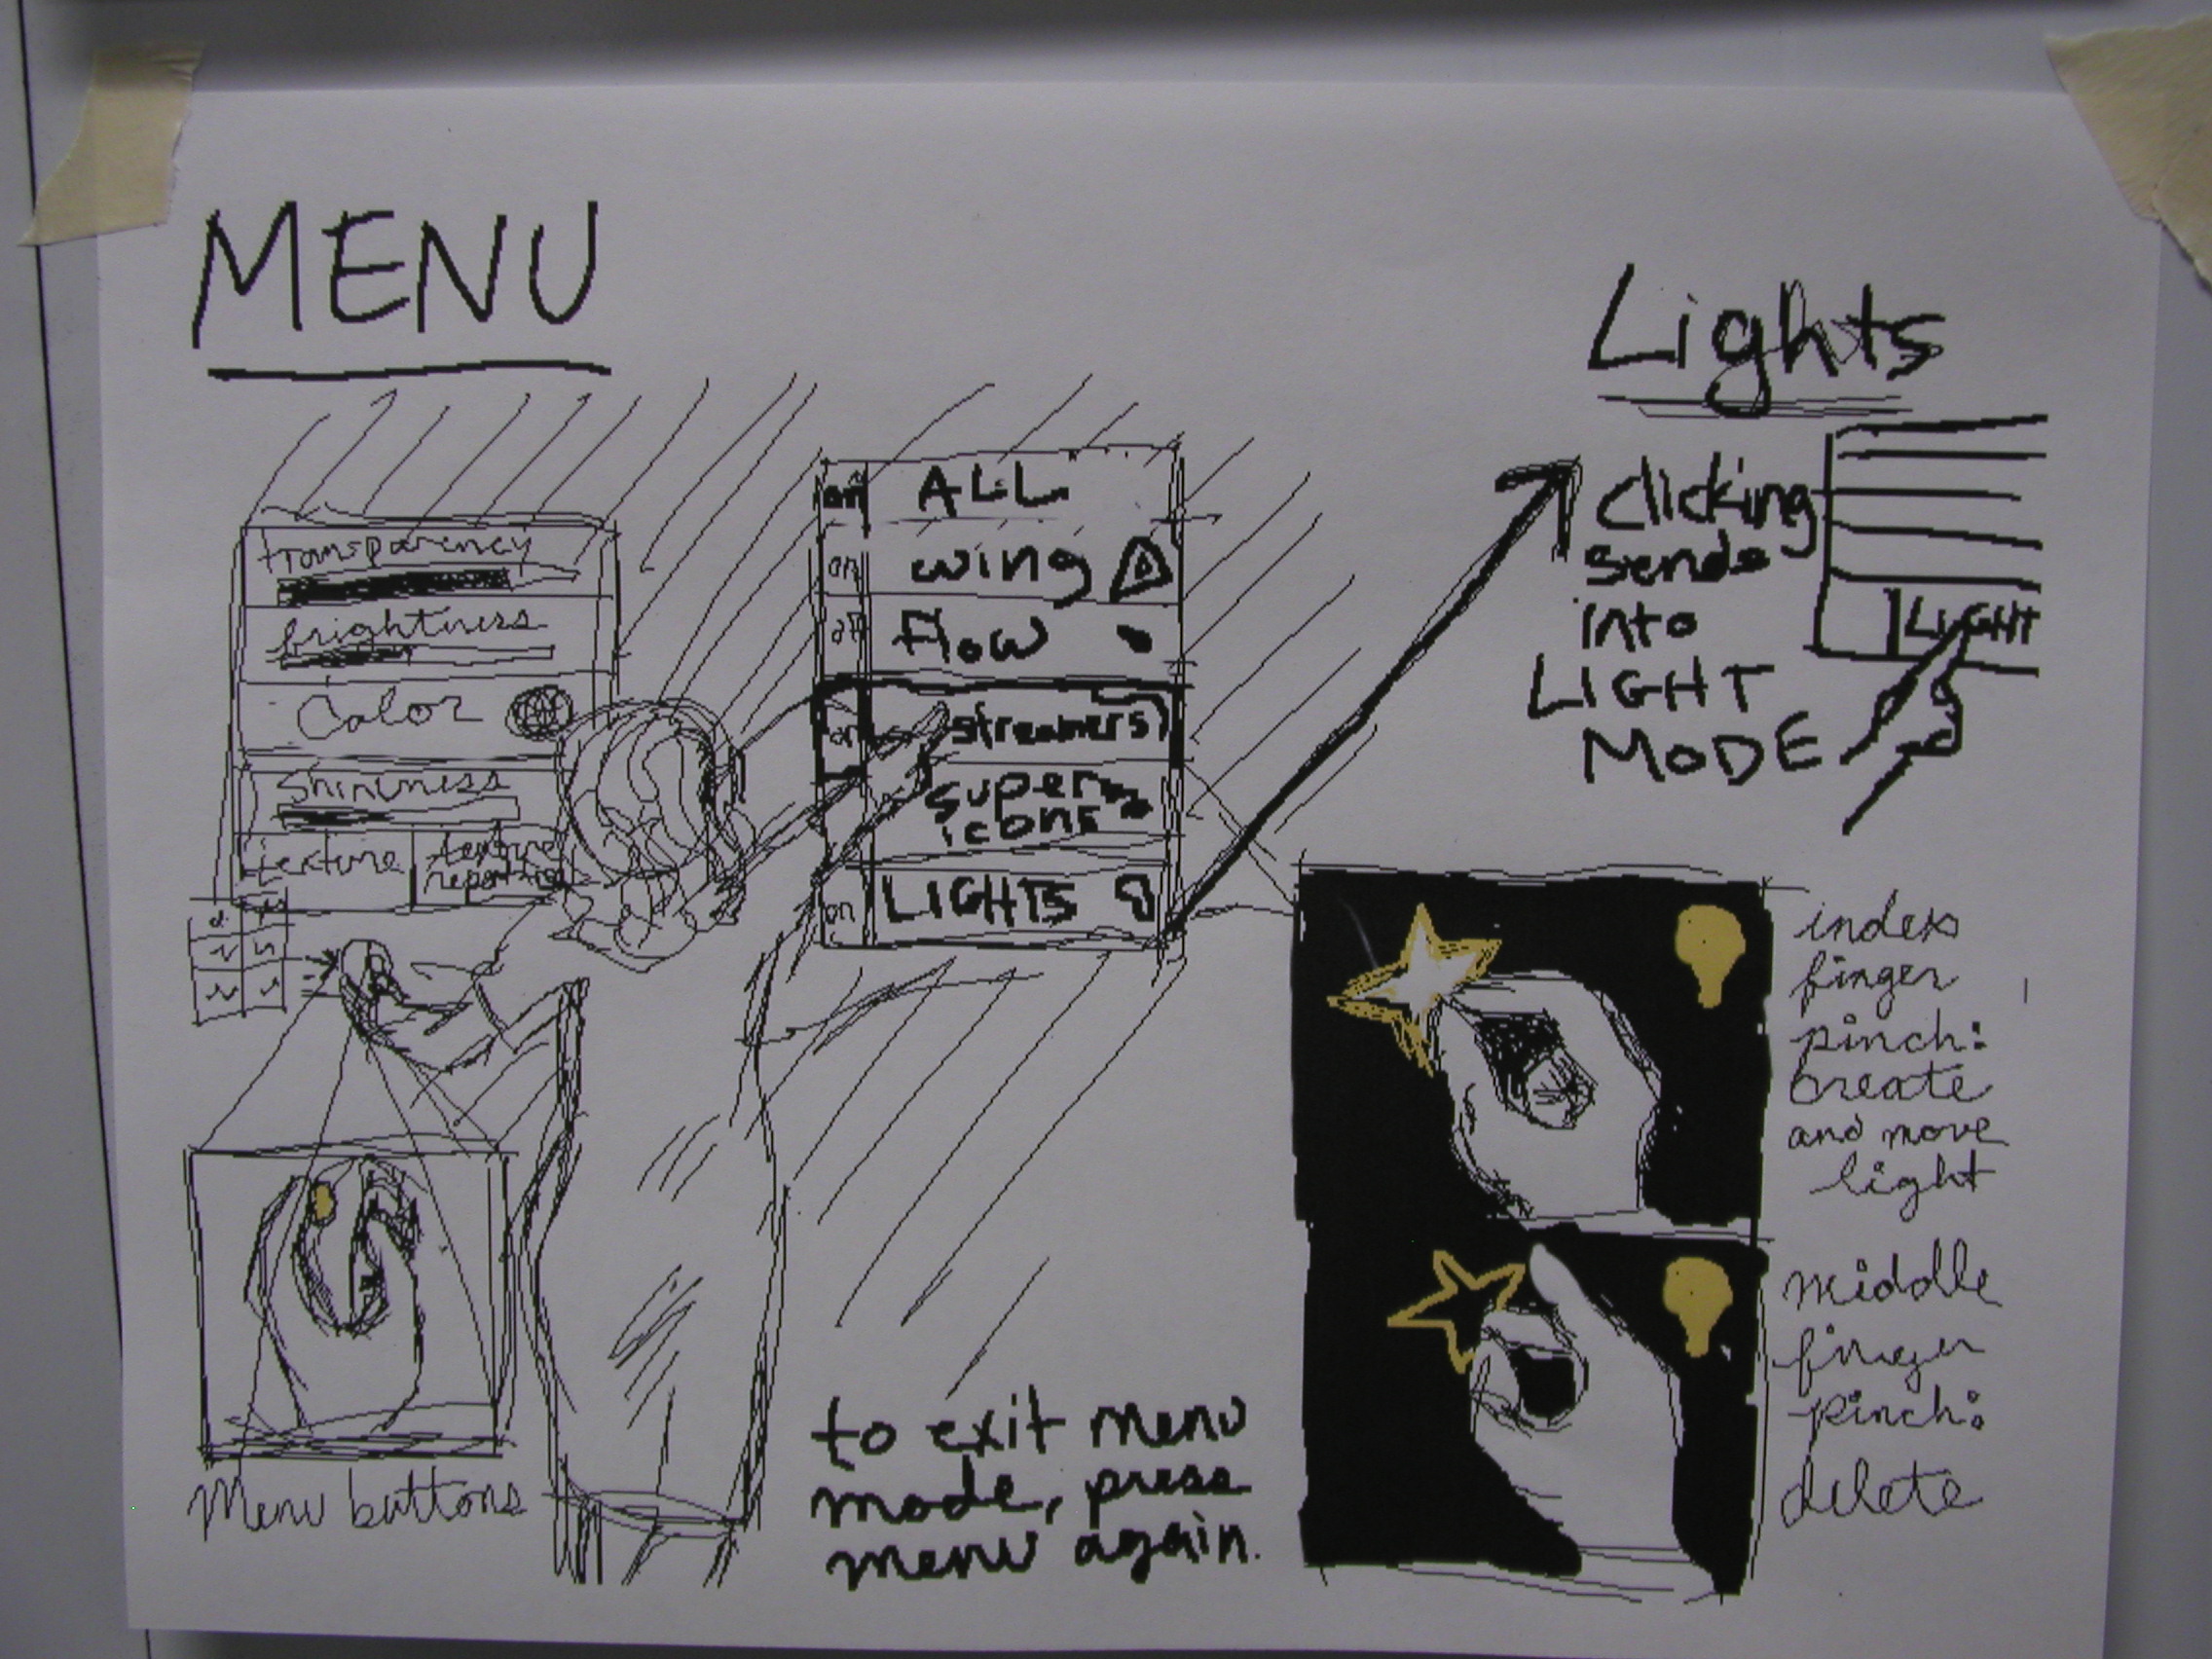 MENU
transparency
brightness
Color
Shininess
texture
texture
Menu buttons
on ALL
on wing
off flow
on streamers
super
icons
on LIGHTS
to exit menu
mode, press
menu again.
Lights
clicking
sends
into
LIGHT
MODE
LIGHT
index
finger
pinch:
create
and move
light
middle
finger
pinch:
delete